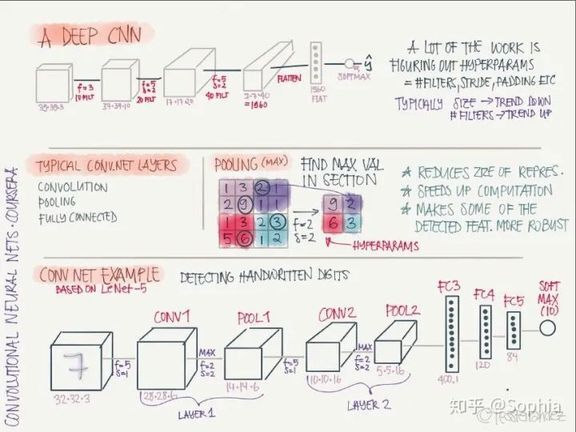 A DEEP CNN
39·39·3
f=3
10 FILT
37·37·10
f=5
s=2
20 FILT
17·17·20
f=5
s=2
40 FILT
7·7·40
=1960
FLATTEN
1960
FLAT
SOFTMAX
ŷ
A LOT OF THE WORK IS
FIGURING OUT HYPERPARAMS
= #FILTERS, STRIDE, PADDING ETC
TYPICALLY SIZE → TREND DOWN
# FILTERS → TREND UP
TYPICAL CONV.NET LAYERS
CONVOLUTION
POOLING
FULLY CONNECTED
POOLING (MAX)
FIND MAX VAL
IN SECTION
1 3 2 1
2 9 1 1
1 3 2 3
5 6 1 2
f=2
s=2
9 2
6 3
HYPERPARAMS
★ REDUCES SIZE OF REPRES.
★ SPEEDS UP COMPUTATION
★ MAKES SOME OF THE
DETECTED FEAT. MORE ROBUST
CONV NET EXAMPLE
BASED ON LeNet-5
DETECTING HANDWRITTEN DIGITS
7
32·32·3
f=5
s=1
CONV1
28·28·6
MAX
f=2
s=2
POOL1
14·14·6
LAYER 1
f=5
s=1
CONV2
10·10·16
MAX
f=2
s=2
POOL2
5·5·16
LAYER 2
FC3
400,1
FC4
120
FC5
84
SOFT
MAX
(10)
CONVOLUTIONAL NEURAL NETS · COURSERA
知乎 @Sophia